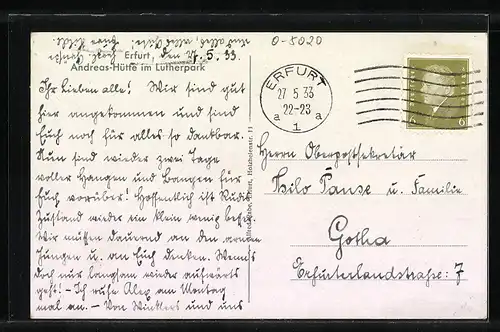 0-5020
Erfurt, den 27.5.33.
Andreas-Hütte im Lutherpark
Ihr Lieben alle! Wir sind gut
hier angekommen und sind
Euch noch für alles so dankbar.
Nun sind wieder zwei Tage
voller Hangen und Bangen für
Euch vorüber! Hoffentlich ist Rudis
Zustand wieder ein klein wenig besser.
Wir müssen dauernd an den armen
Jungen u. an Euch denken. Wenn's
doch nur langsam wieder aufwärts
geht! - Ich rufe Alex am Montag
mal an. - Von Winklers und uns
ERFURT
27.5.33
22-23
a 1 a
6 6
Herrn Oberpostsekretär
Thilo Panse u. Familie
Gotha
Erfurterlandstraße: 7